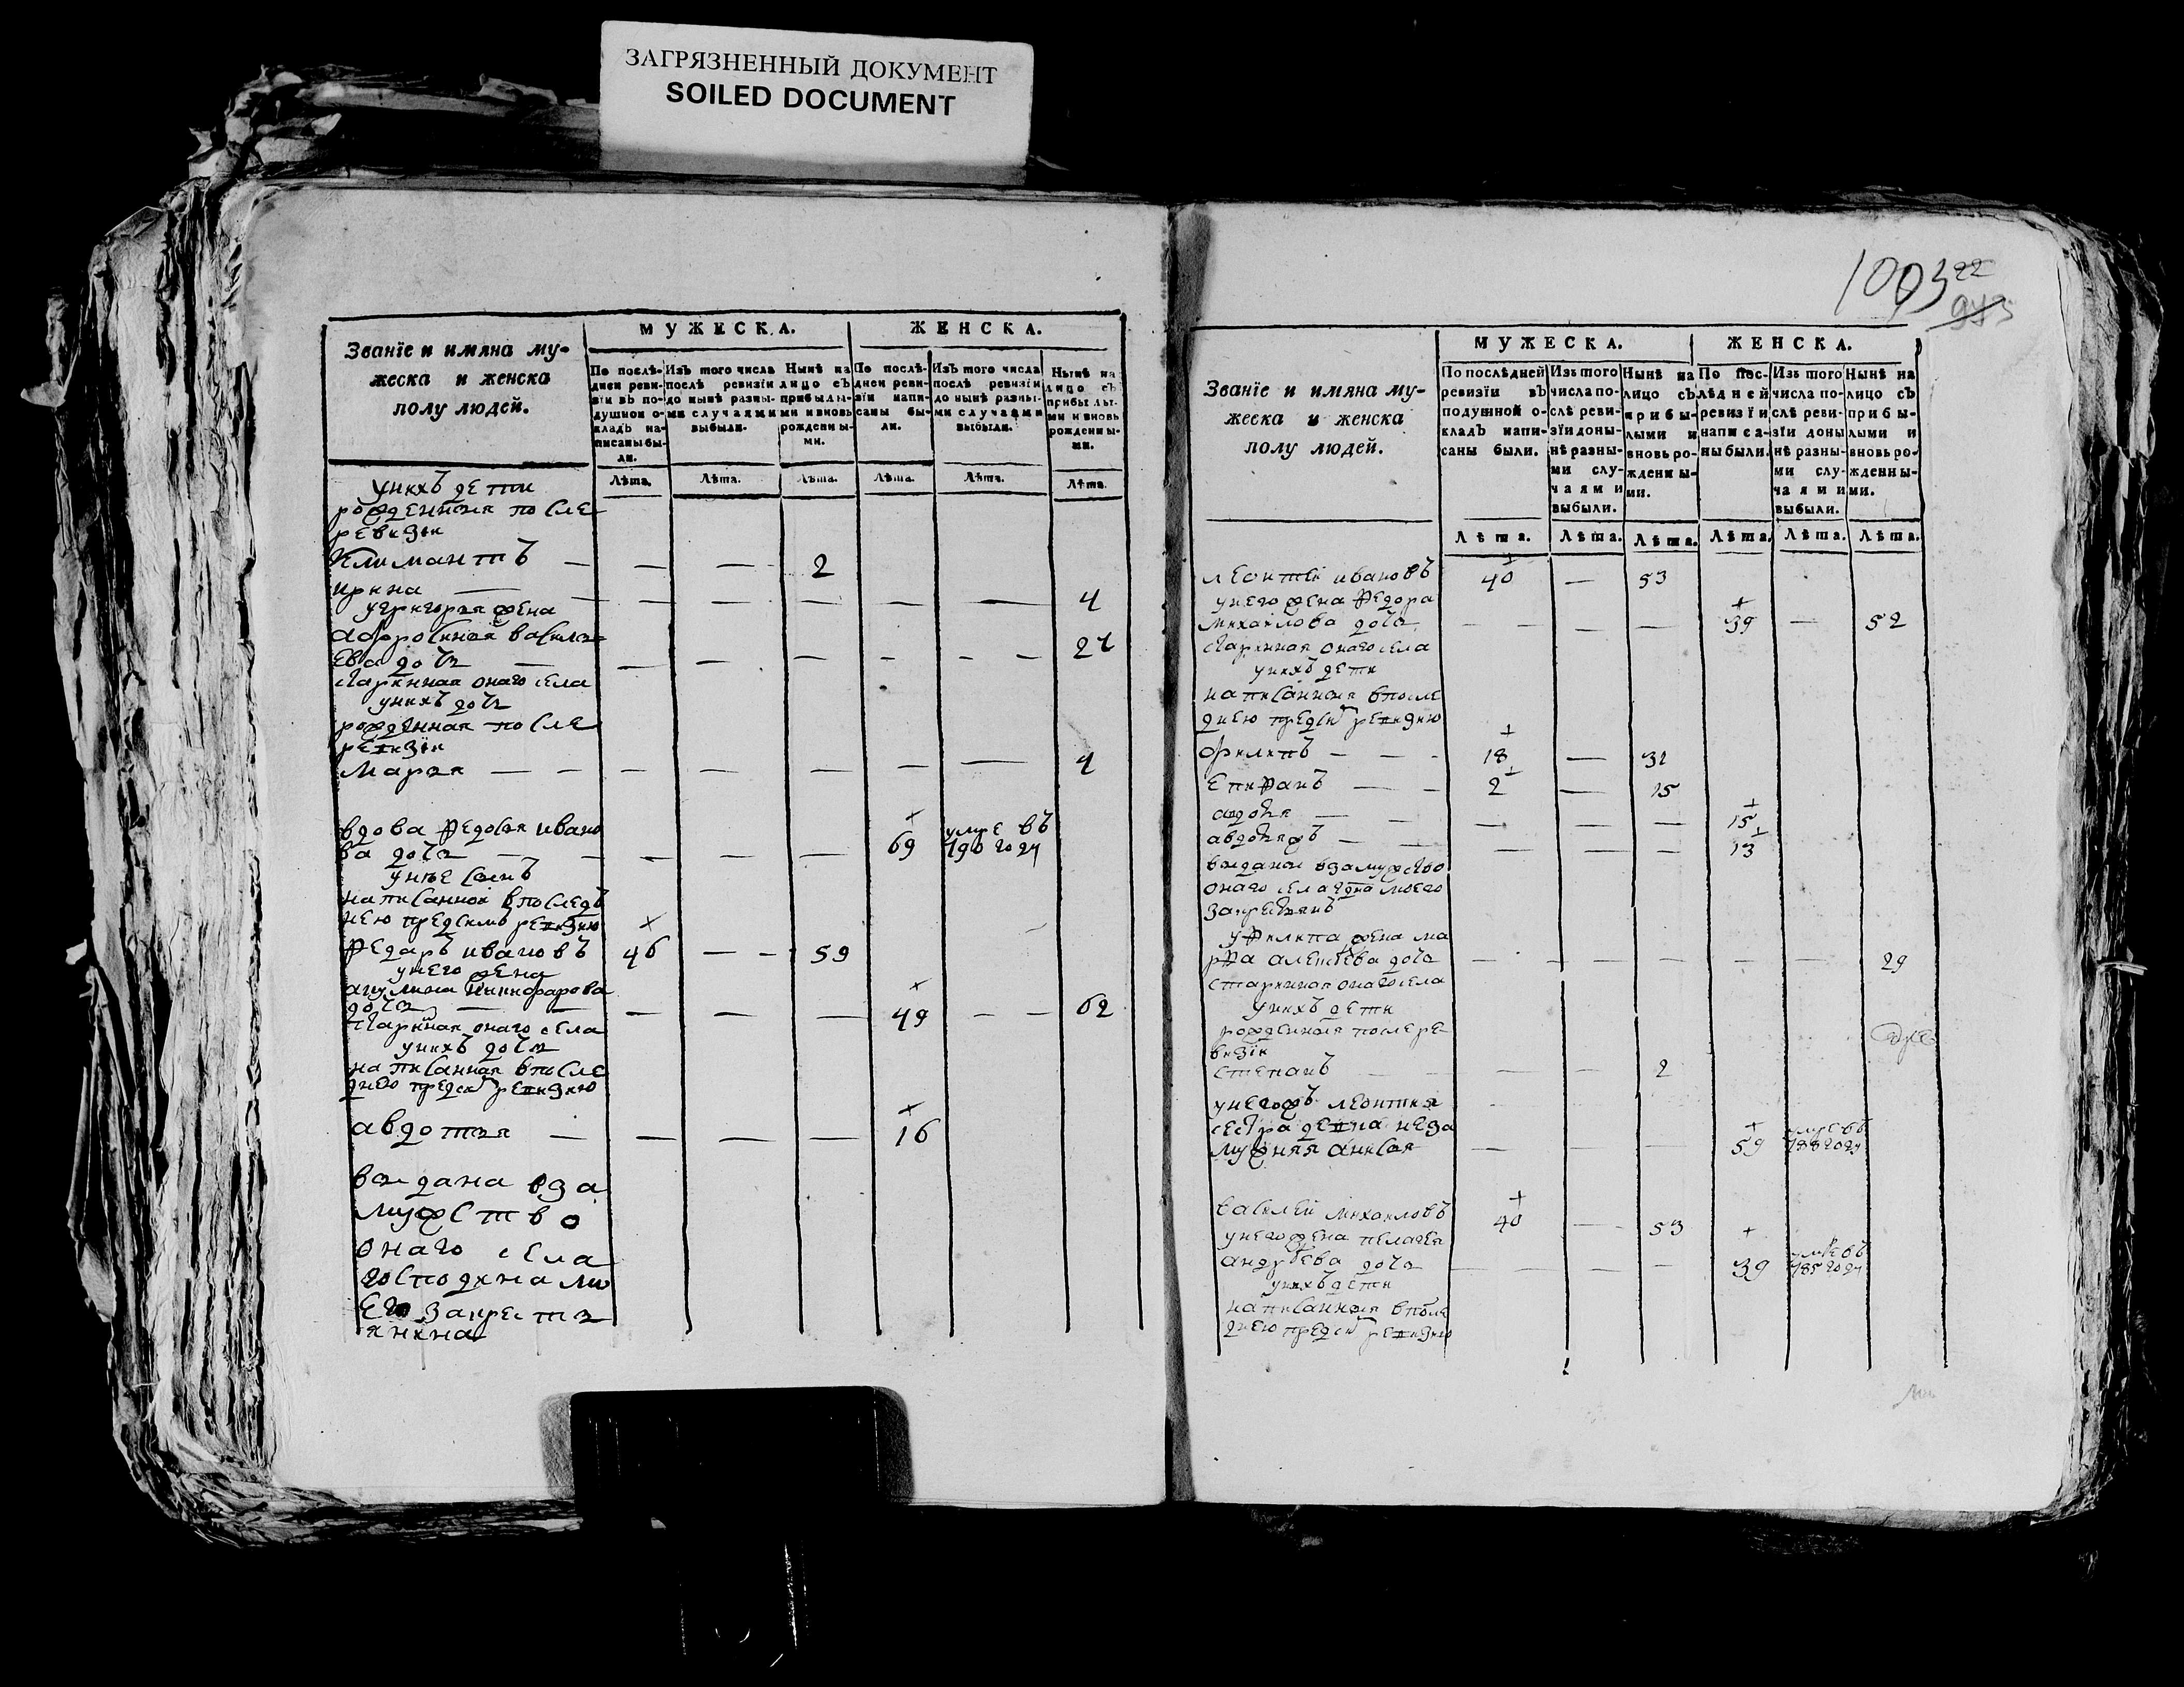 ЗАГРЯЗНЕННЫЙ ДОКУМЕНТ
SOILED DOCUMENT
Званїе и имяна му-
жеска и женска
полу людей.
МУЖЕСКА.
ЖЕНСКА.
По послѣ-
дней реви-
зїи въ по-
душной о-
кладъ на-
писаны бы-
ли.
Изъ того числа
послѣ ревизїи
до нынѣ разны-
ми случаями
выбыли.
Нынѣ на
лицо съ
прибылы-
ми и вновь
рожденны-
ми.
По послѣ-
дней реви-
зїи напи-
саны бы-
ли.
Изъ того числа
послѣ ревизїи
до нынѣ разны-
ми случаями
выбыли.
Нынѣ на
лицо съ
прибылы-
ми и вновь
рожденны-
ми.
Лѣта. Лѣта. Лѣта. Лѣта. Лѣта. Лѣта.
уникъ дети
рожденныя после
ревизїи
Климантъ — — — 2
ирина — — — — — — 4
угригорья жена
афросиния василь
ева дочь — — — — — —
старинная онаго села
унихъ дочь
рожденная после
ревизїи
марья — — — — — — — 4
вдова федосья ивано
ва дочь — — — — 69 умре въ
790 году
унее сынъ
написанной впоследъ
нею предсимъ ревизию
федаръ ивановъ 46 — — 59
унего жена
акулина никифарова
дочь — — — 49 — — 62
старинная онаго села
унихъ дочь
написанная впосле
днею предсимъ ревизию
авдотья — — — — 16
выдана вза
мужство
онаго села
господина мо
его закрестья
нина
1003 22
975
Званїе и имяна му-
жеска и женска
полу людей.
МУЖЕСКА.
ЖЕНСКА.
По послѣдней
ревизїи въ
подушной о-
кладъ напи-
саны были.
Изъ того
числа по-
слѣ реви-
зїи доны-
нѣ разны-
ми слу-
чаями
выбыли.
Нынѣ на
лицо съ
прибы-
лыми и
вновь ро-
жденны-
ми.
По пос-
лѣдней
ревизїи
написа-
ны были.
Изъ того
числа по-
слѣ реви-
зїи доны
нѣ разны-
ми слу-
чаями
выбыли.
Нынѣ на
лицо съ
прибы-
лыми и
вновь ро-
жденны-
ми.
Лѣта. Лѣта. Лѣта. Лѣта. Лѣта. Лѣта.
леонтей ивановъ 40 — 53
унего жена федора
михайлова дочь — — — — 39 — 52
старинная онаго села
унихъ дети
написанныя впосле
днею предсимъ ревизию
филипъ — — — 18 — 31
епифанъ — — 2 — 15
— — — — 15
— — — — 13
выданы взамужство
онаго села
закрестьянъ
уфилипа жена ма
рфа алексеева дочь — — — — — — 29
старинная онаго села
унихъ дети
рожденныя послере
визїи
степанъ — — — — 2
унегожъ леонтия
сестра девка неза
мужняя анисья — — — 59 умре въ
788 году
василей михаиловъ 40 — 53
унего жена пелагея
андреева дочь — — — — 39 умре въ
785 году
унихъ дети
написанныя впосле
днею предсимъ ревизию